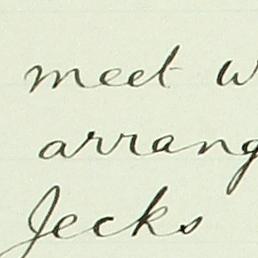 meet w
arrang
Jecks